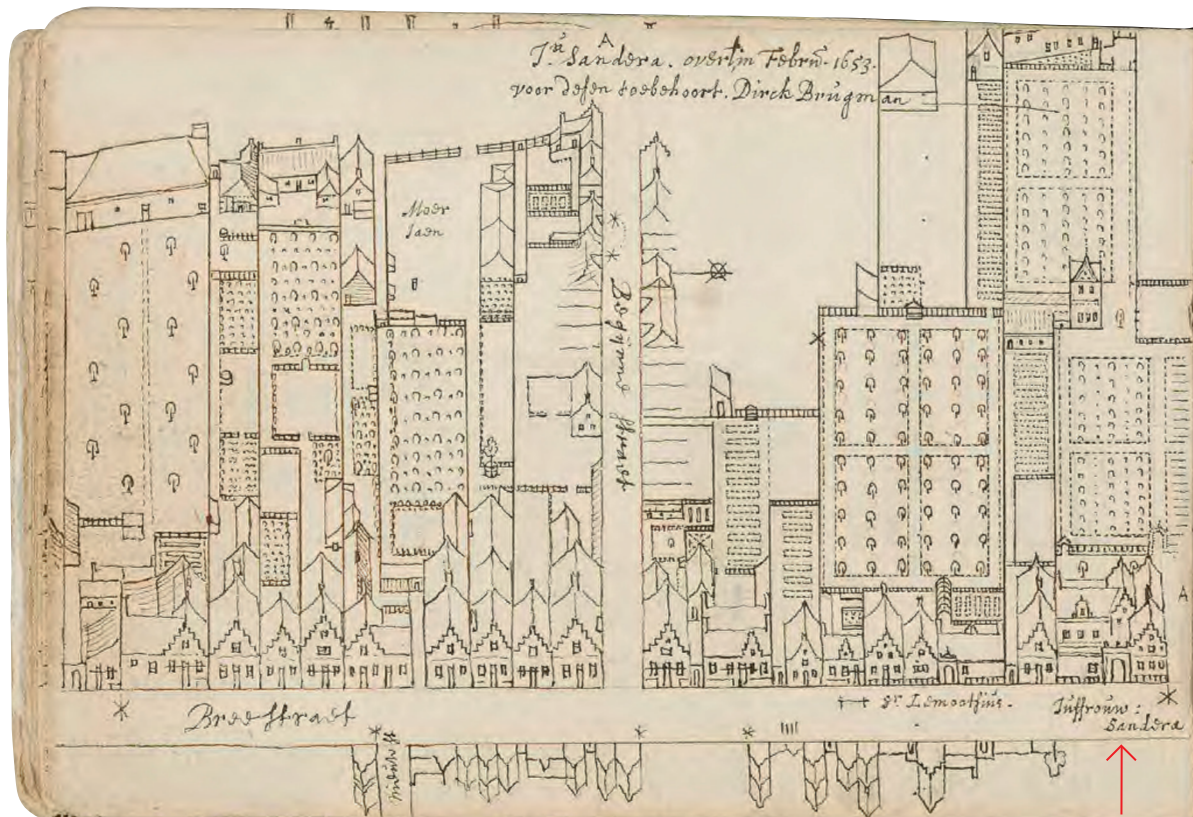 A
Jᵘ Sandera. overl. in Febru. 1653.
voor desen toebehoort. Dirck Brugman
Moer
laen
Begijne straet
A
Breestraet
Sʳ Lemoothius.
Juffrouw:
Sandera
nieuw st